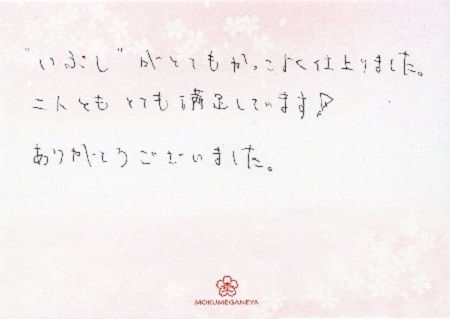 "いぶし"がとてもかっこよく仕上りました。
二人ともとても満足しています♪
ありがとうございました。
MOKUMEGANEYA